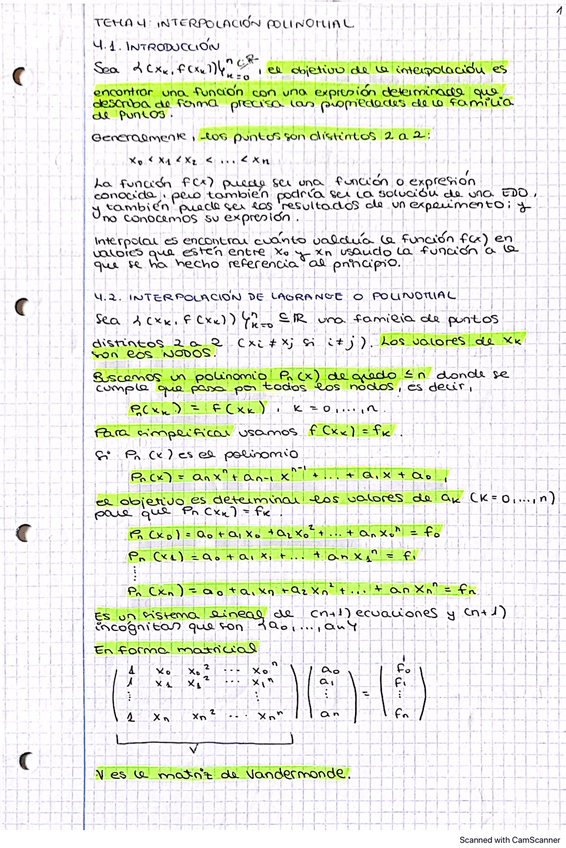 1
TEMA 4: INTERPOLACIÓN POLINOMIAL
4.1. INTRODUCCIÓN
Sea {(xₖ, f(xₖ))}ⁿₖ₌₀ ⊆ R², el objetivo de la interpolación es
encontrar una función con una expresión determinada que
describa de forma precisa las propiedades de la familia
de puntos.
Generalmente, los puntos son distintos 2 a 2:
x₀ < x₁ < x₂ < ... < xₙ
La función f(x) puede ser una función o expresión
conocida, pero también podría ser la solución de una EDO,
y también puede ser los resultados de un experimento; y
no conocemos su expresión.
Interpolar es encontrar cuánto valdría la función f(x) en
valores que estén entre x₀ y xₙ usando la función a la
que se ha hecho referencia al principio.
4.2. INTERPOLACIÓN DE LAGRANGE O POLINOMIAL
Sea {(xₖ, f(xₖ))}ⁿₖ₌₀ ⊆ ℝ una familia de puntos
distintos 2 a 2 (xᵢ ≠ xⱼ si i ≠ j). Los valores de xₖ
son los NODOS.
Buscamos un polinomio Pₙ(x) de grado ≤ n donde se
cumple que pasa por todos los nodos, es decir,
Pₙ(xₖ) = f(xₖ), k = 0,...,n.
Para simplificar usamos f(xₖ) = fₖ.
Si Pₙ(x) es el polinomio
Pₙ(x) = aₙxⁿ + aₙ₋₁xⁿ⁻¹ + ... + a₁x + a₀,
el objetivo es determinar los valores de aₖ (k = 0,...,n)
para que Pₙ(xₖ) = fₖ.
Pₙ(x₀) = a₀ + a₁x₀ + a₂x₀² + ... + aₙx₀ⁿ = f₀
Pₙ(x₁) = a₀ + a₁x₁ + ... + aₙx₁ⁿ = f₁
⋮
Pₙ(xₙ) = a₀ + a₁xₙ + a₂xₙ² + ... + aₙxₙⁿ = fₙ
Es un sistema lineal de (n+1) ecuaciones y (n+1)
incógnitas que son {a₀,...,aₙ}
En forma matricial
( 1 x₀ x₀² ... x₀ⁿ ) ( a₀ ) = ( f₀ )
1 x₁ x₁² ... x₁ⁿ a₁ f₁
⋮ ⋮ ⋮ ⋮ ⋮
1 xₙ xₙ² ... xₙⁿ aₙ fₙ
V
V es la matriz de Vandermonde.
Scanned with CamScanner